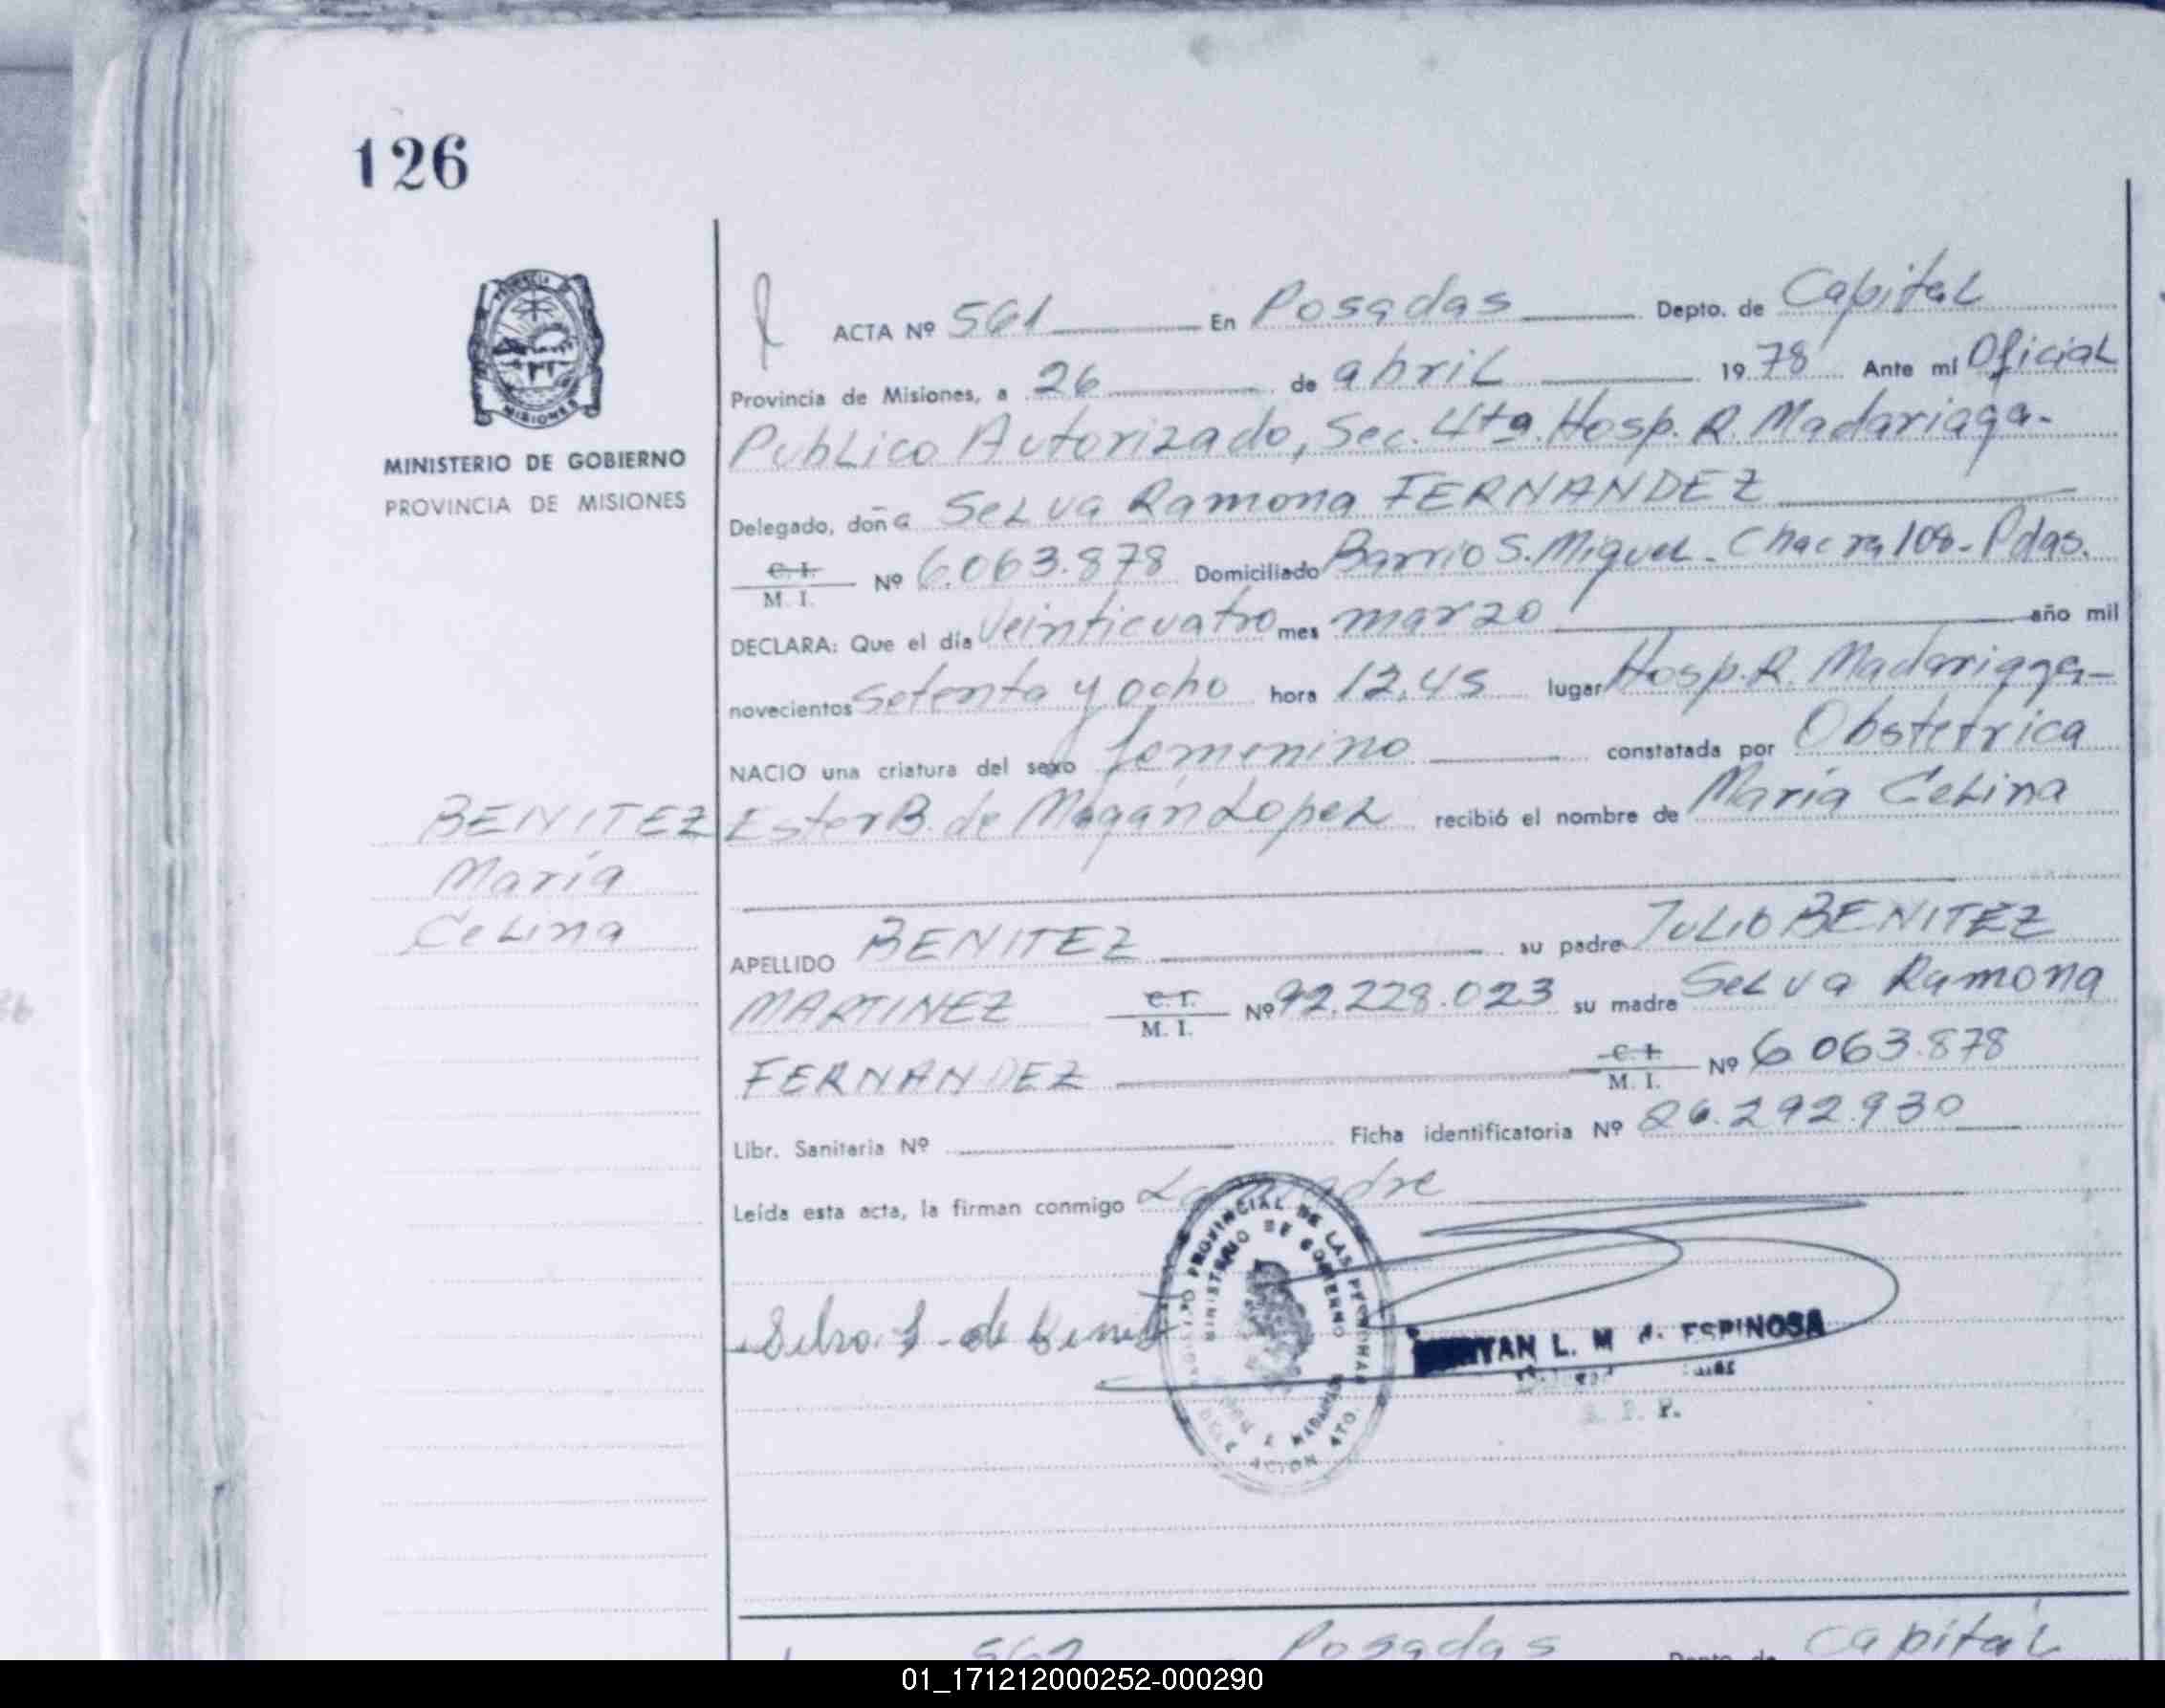 126
MINISTERIO DE GOBIERNO
PROVINCIA DE MISIONES
ACTA Nº 561 En Posadas Depto. de Capital
Provincia de Misiones, a 26 de abril 1978 Ante mí Oficial
Publico Autorizado, Sec. 4ta. Hosp. R. Madariaga.
Delegado, doña Selva Ramona FERNANDEZ
C. I.
M. I. Nº 6.063.878 Domiciliado Barrio S. Miguel - Chacra 108 - Pdas.
DECLARA: Que el día Veinticuatro mes marzo año mil
novecientos setenta y ocho hora 12,45 lugar Hosp. R. Madariaga
NACIO una criatura del sexo femenino constatada por Obstetrica
Ester B. de Magán Lopez recibió el nombre de María Celina
BENITEZ
María
Celina
APELLIDO BENITEZ su padre JULIO BENITEZ
MARTINEZ C. I. M. I. Nº 92.228.023 su madre Selva Ramona
FERNANDEZ C. I. M. I. Nº 6.063.878
Libr. Sanitaria Nº Ficha identificatoria Nº 26.292.930
Leída esta acta, la firman conmigo La madre
PROVINCIAL DE LAS PERSONAS
MINISTERIO DE GOBIERNO
L. M. ESPINOSA
562 Posadas Depto. de Capital
01_171212000252-000290